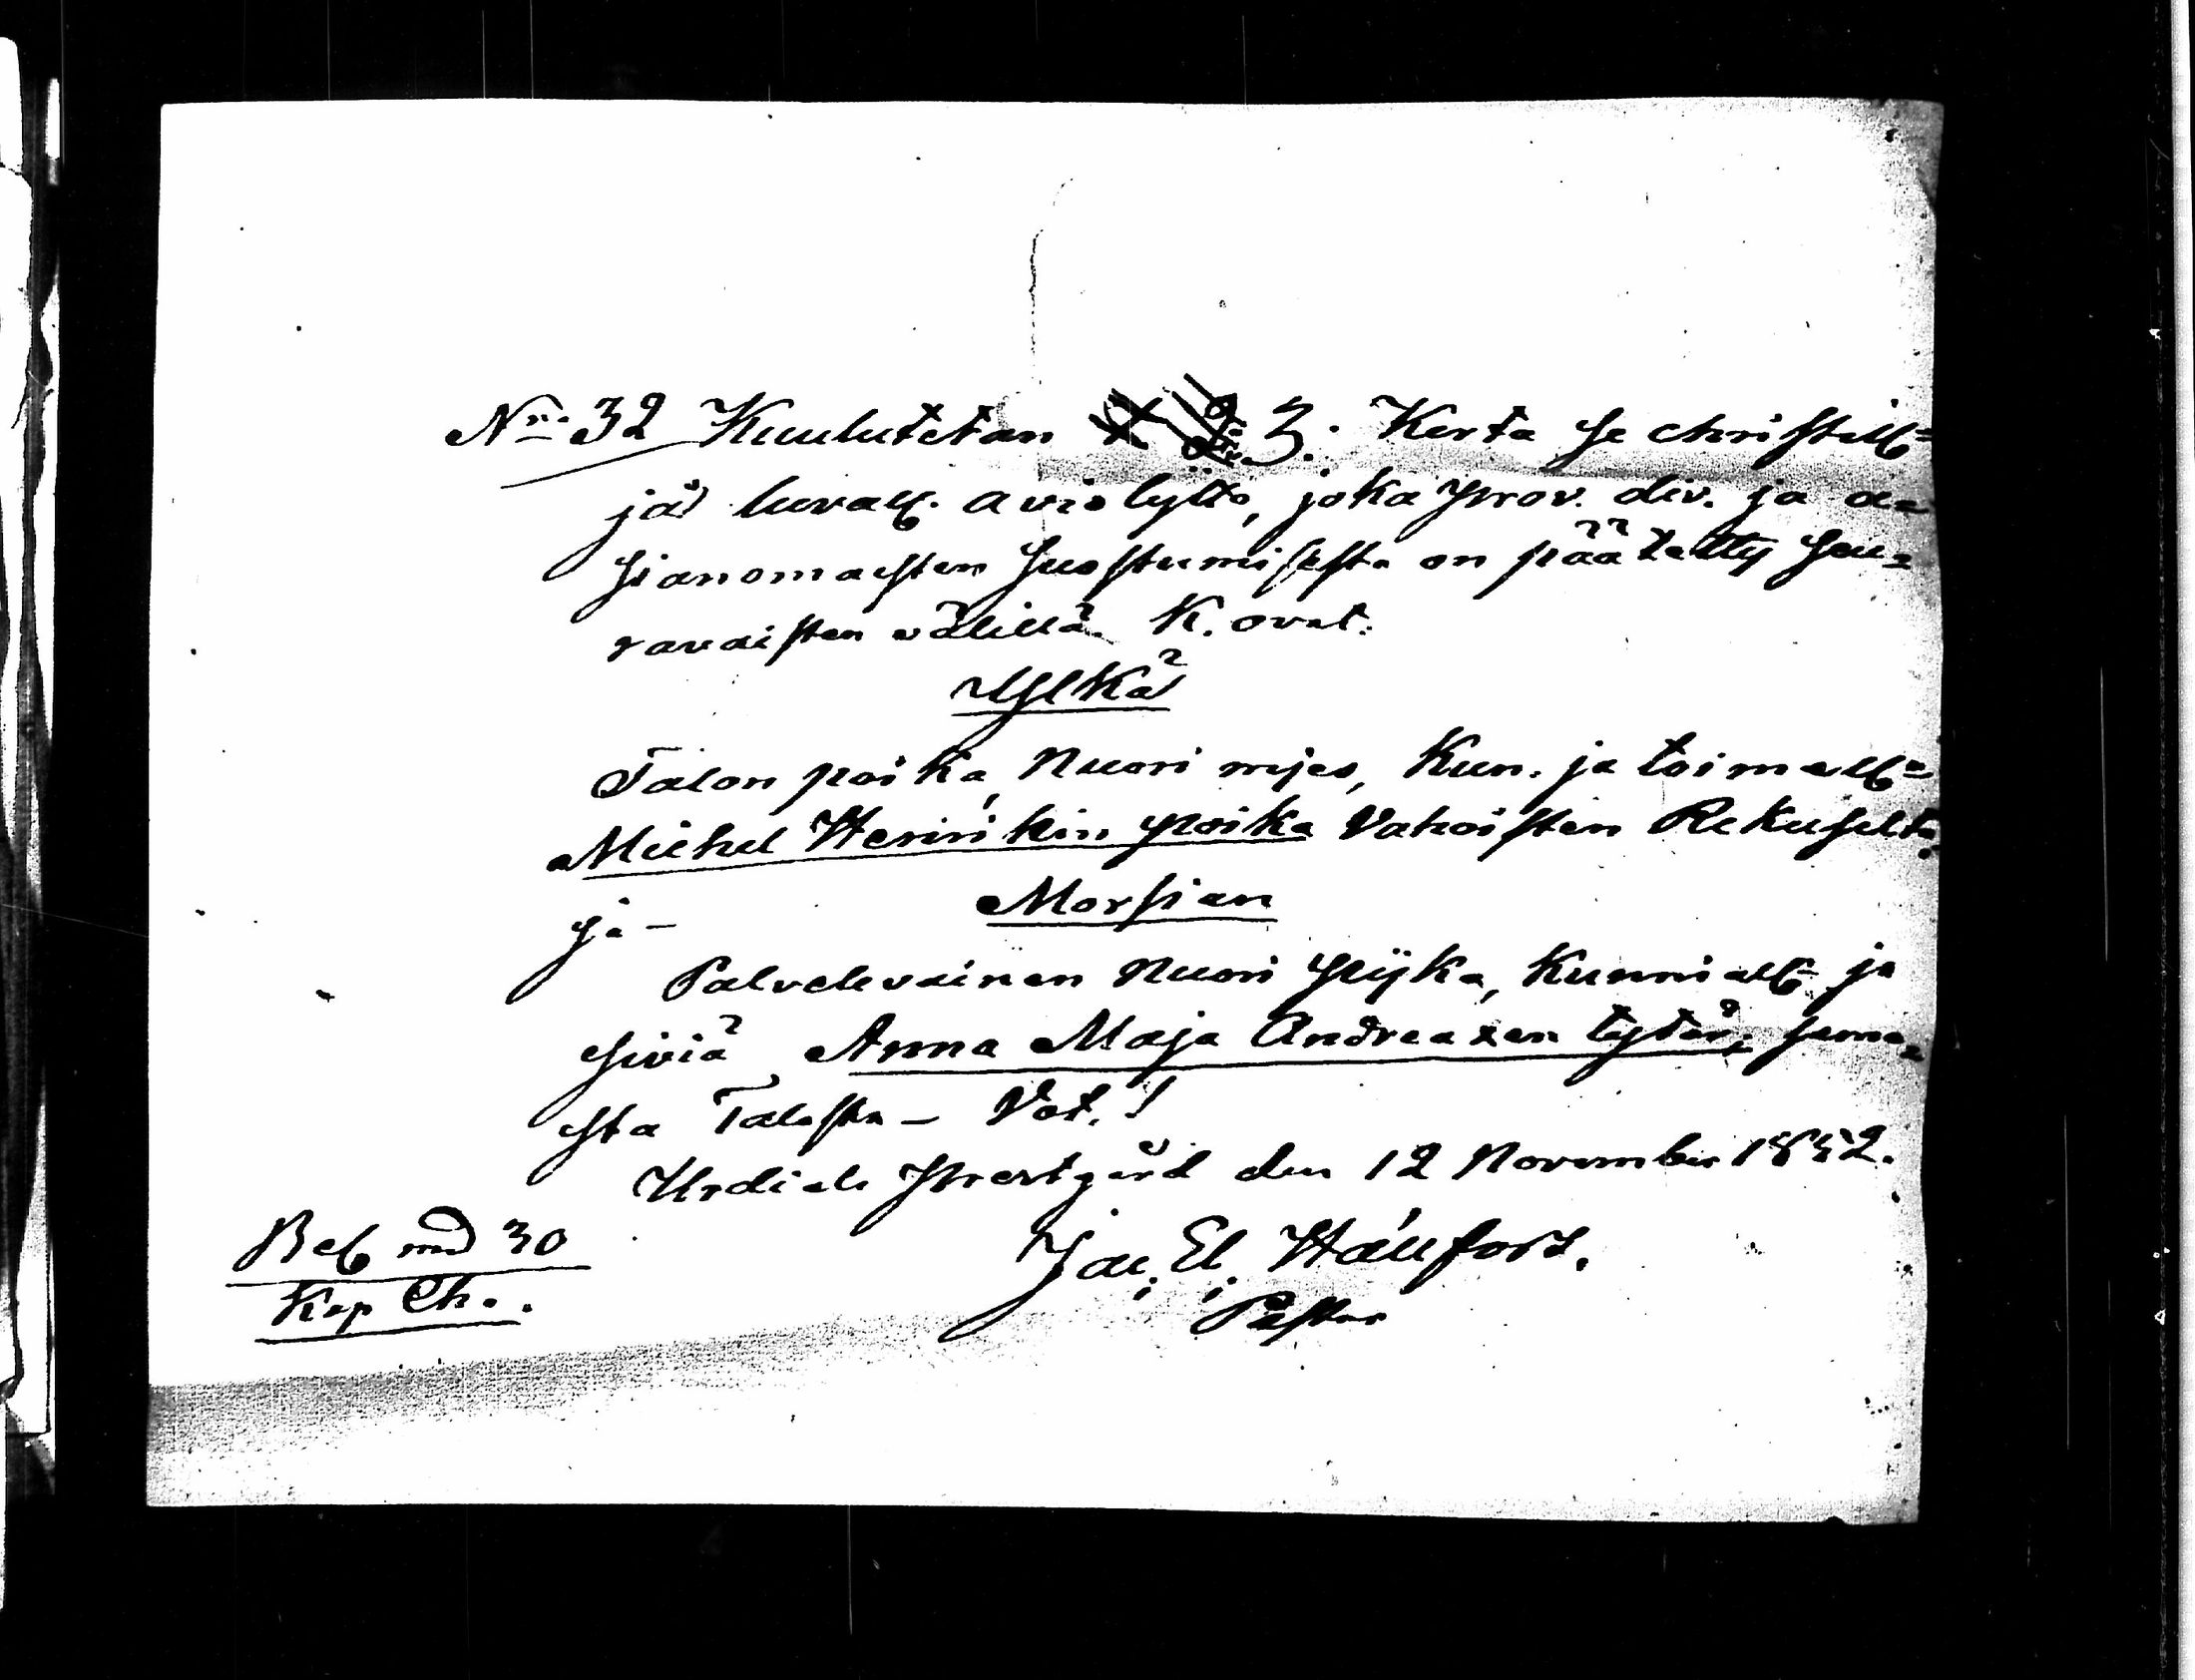 No 32 Kuulutetan 3. Kerta se christill=
jä luvall. avio lytto, joka prov. div. ja a=
sianomaisten suostumisesta on päätetty seu=
ravaisten välillä. K. ovat:
Ylkä
Talon poika, Nuori mjes, Kun. ja toimall=
Michel Henrikin poika Vahoisten Rekuselta
ja —
Morsian
Palvelevainen Nuori pijka, Kunniall= ja
siviä Anna Maja Andreaxen tytär, sama=
sta Talosta — Vot.!
Urdiala Prestgård den 12 November 1852.
Jac. El. Hällfors.
Pastor
Bet md 30
Kop Ch..